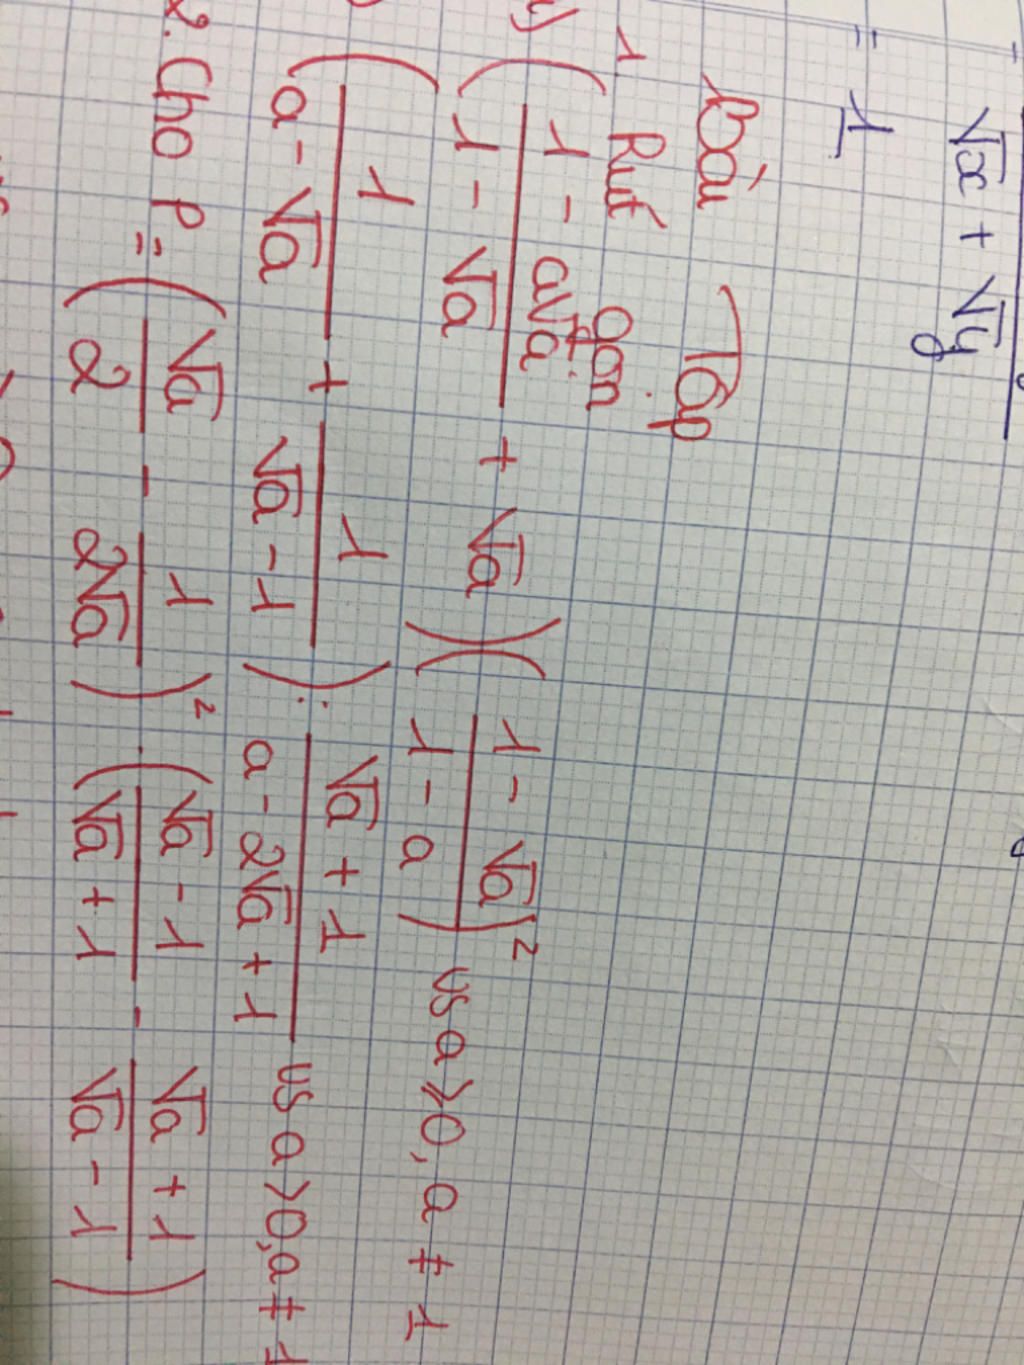 √x + √y
= 1
Bài Tập
1. Rút gọn
(1 - a√a / 1 - √a + √a)(1 - √a / 1 - a)² vs a ≥ 0, a ≠ 1
(1 / a - √a + 1 / √a - 1) : √a + 1 / a - 2√a + 1 vs a > 0, a ≠ 1
2. Cho P = (√a / 2 - 1 / 2√a)² . (√a - 1 / √a + 1 - √a + 1 / √a - 1)